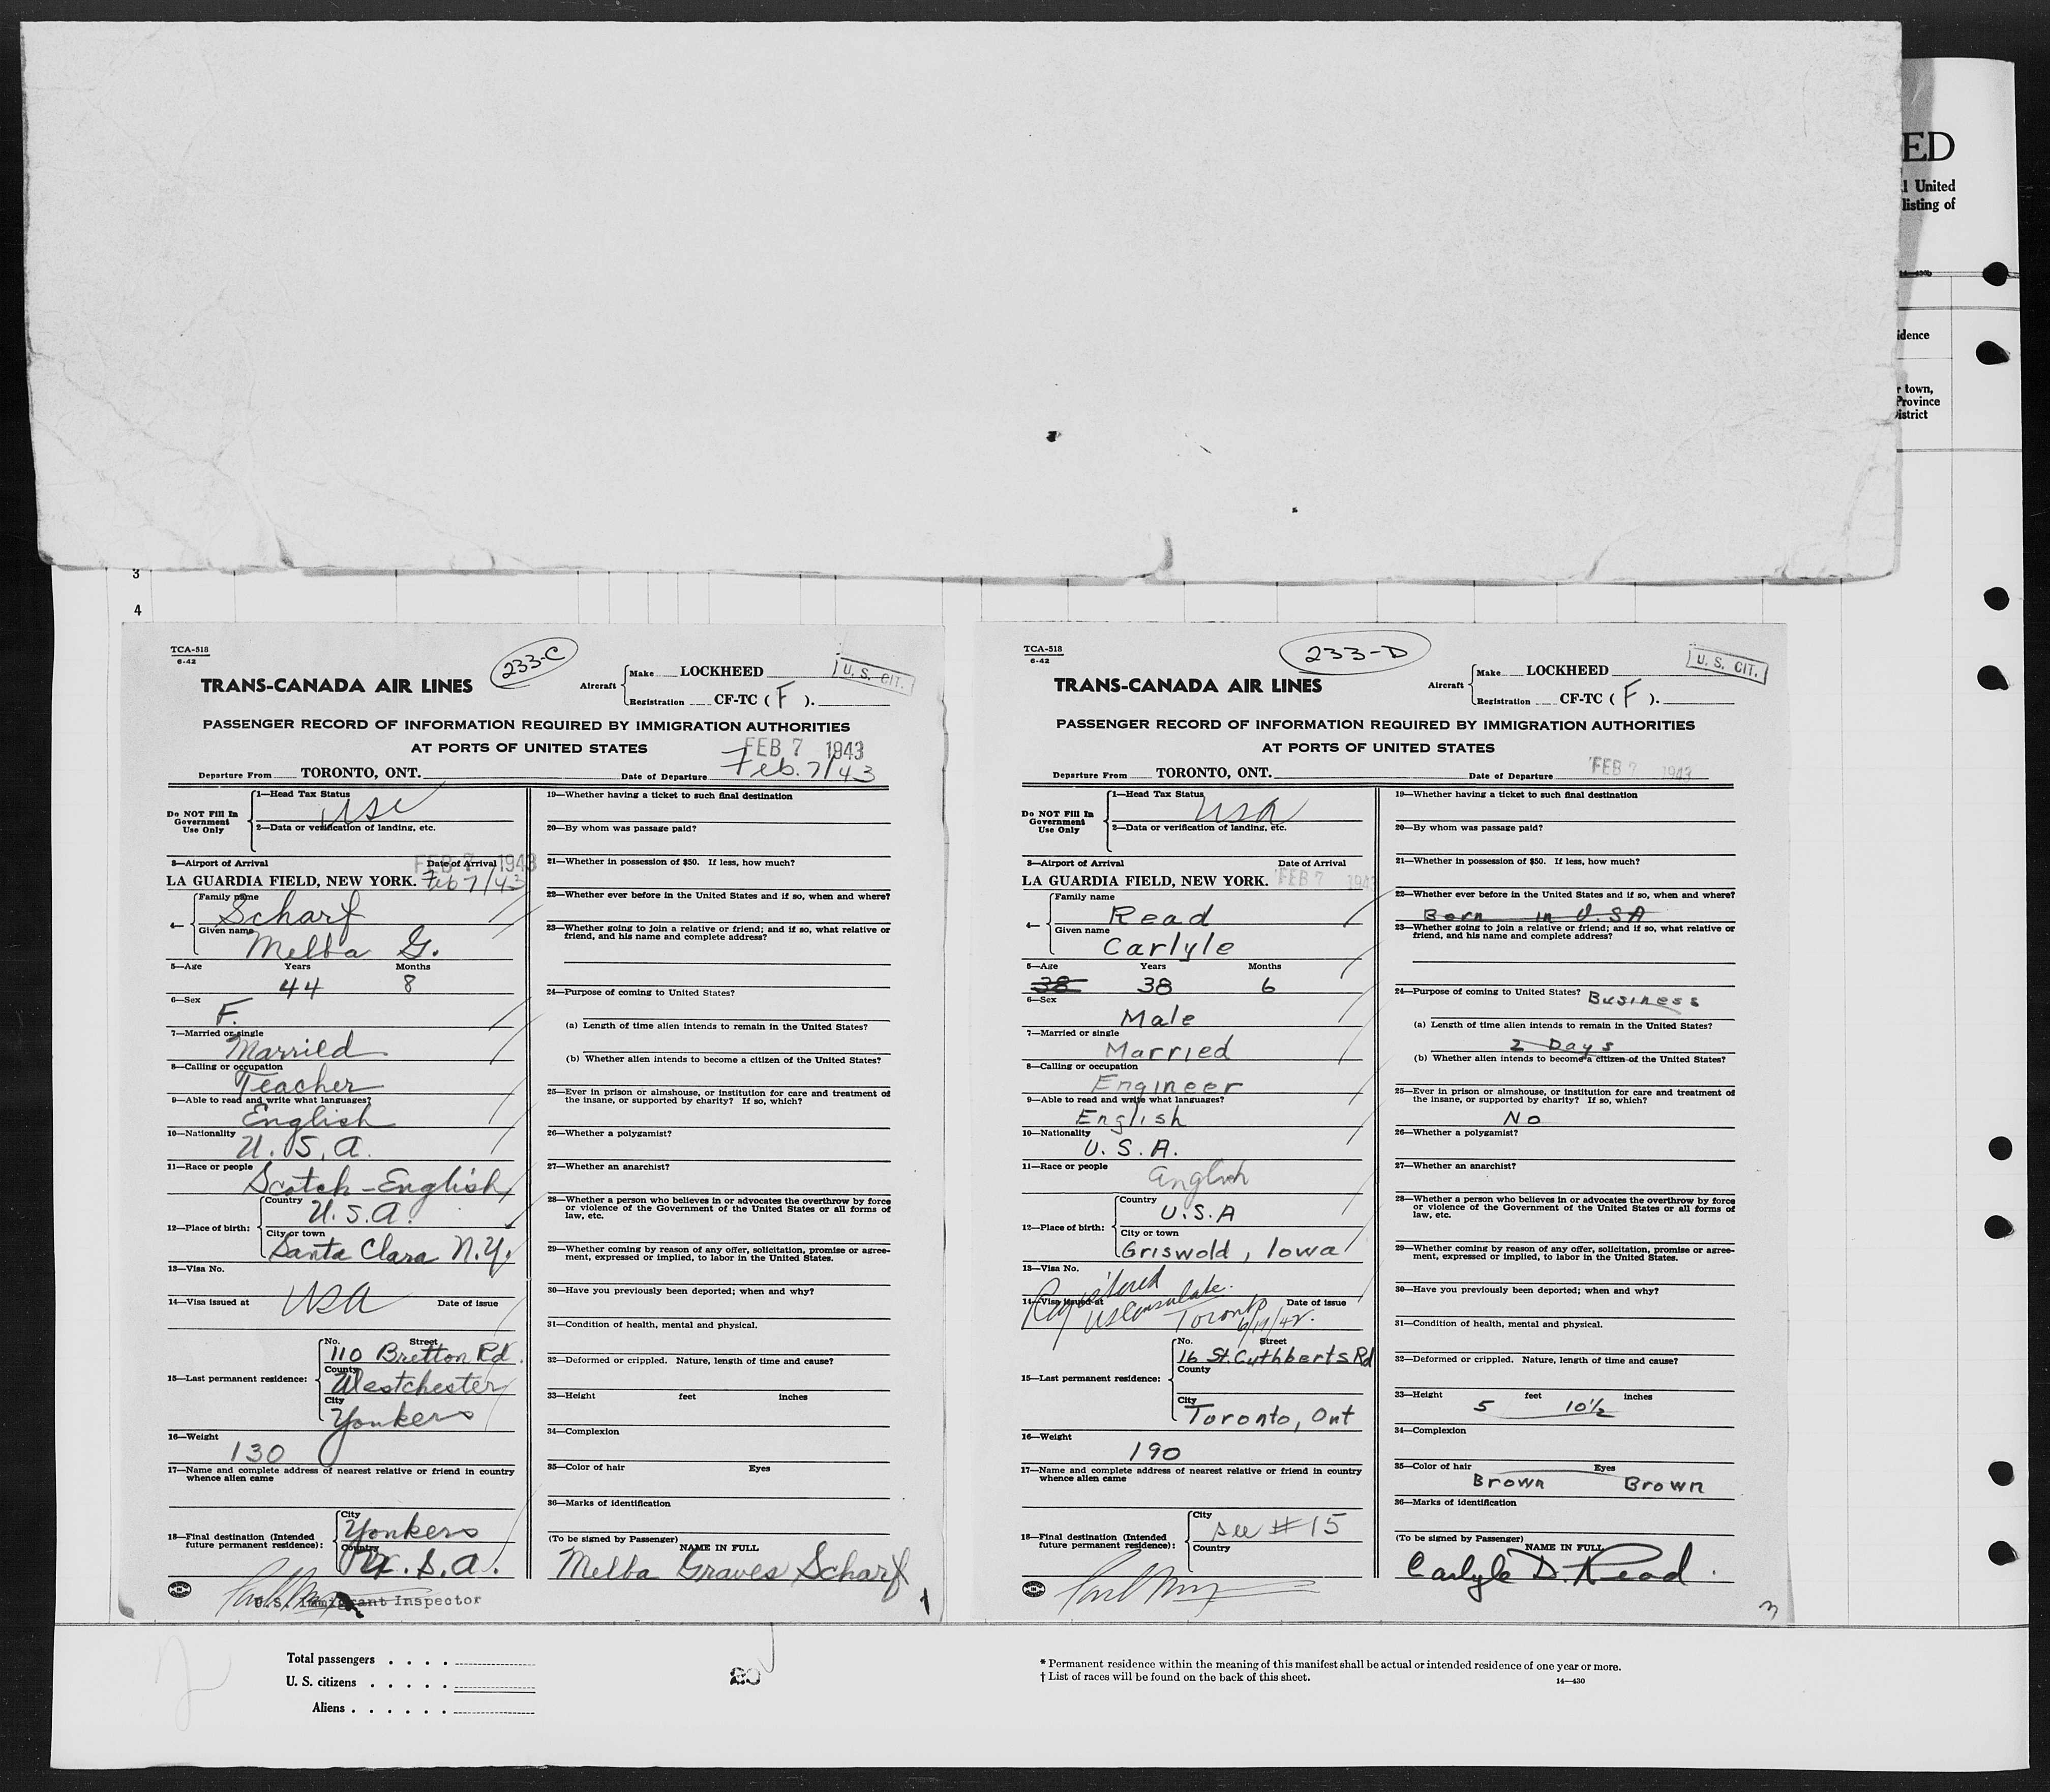 ED
l United
listing of
idence
r town,
Province
District
3
4
TCA-518
6-42
233-C
TRANS-CANADA AIR LINES
Aircraft
Make LOCKHEED
Registration CF-TC ( F ).
U. S. CIT.
PASSENGER RECORD OF INFORMATION REQUIRED BY IMMIGRATION AUTHORITIES
AT PORTS OF UNITED STATES
FEB 7 1943
Departure From TORONTO, ONT. Date of Departure Feb. 7/43
Do NOT Fill In
Government
Use Only
1—Head Tax Status
USC
2—Data or verification of landing, etc.
3—Airport of Arrival Date of Arrival
FEB 7 1943
LA GUARDIA FIELD, NEW YORK. Feb 7/43
4—
Family name
Scharf
Given name
Melba G.
5—Age Years Months
44 8
6—Sex
F.
7—Married or single
Married
8—Calling or occupation
Teacher
9—Able to read and write what languages?
English
10—Nationality
U. S. A.
11—Race or people
Scotch-English
12—Place of birth:
Country
U. S. A.
City or town
Santa Clara N.Y.
13—Visa No.
USA
14—Visa issued at Date of issue
15—Last permanent residence:
No. Street
110 Bretton Rd.
County
Westchester
City
Yonkers
16—Weight
130
17—Name and complete address of nearest relative or friend in country
whence alien came
18—Final destination (Intended
future permanent residence):
City
Yonkers
Country
U. S. A.
U.S. Immigrant Inspector
19—Whether having a ticket to such final destination
20—By whom was passage paid?
21—Whether in possession of $50. If less, how much?
22—Whether ever before in the United States and if so, when and where?
23—Whether going to join a relative or friend; and if so, what relative or
friend, and his name and complete address?
24—Purpose of coming to United States?
(a) Length of time alien intends to remain in the United States?
(b) Whether alien intends to become a citizen of the United States?
25—Ever in prison or almshouse, or institution for care and treatment of
the insane, or supported by charity? If so, which?
26—Whether a polygamist?
27—Whether an anarchist?
28—Whether a person who believes in or advocates the overthrow by force
or violence of the Government of the United States or all forms of
law, etc.
29—Whether coming by reason of any offer, solicitation, promise or agree-
ment, expressed or implied, to labor in the United States.
30—Have you previously been deported; when and why?
31—Condition of health, mental and physical.
32—Deformed or crippled. Nature, length of time and cause?
33—Height feet inches
34—Complexion
35—Color of hair Eyes
36—Marks of identification
(To be signed by Passenger)
NAME IN FULL
Melba Graves Scharf
1
TCA-518
6-42
233-D
TRANS-CANADA AIR LINES
Aircraft
Make LOCKHEED
Registration CF-TC ( F ).
U. S. CIT.
PASSENGER RECORD OF INFORMATION REQUIRED BY IMMIGRATION AUTHORITIES
AT PORTS OF UNITED STATES
Departure From TORONTO, ONT. Date of Departure FEB 7 1943
Do NOT Fill In
Government
Use Only
1—Head Tax Status
USA
2—Data or verification of landing, etc.
3—Airport of Arrival Date of Arrival
LA GUARDIA FIELD, NEW YORK. FEB 7 1943
4—
Family name
Read
Given name
Carlyle
5—Age Years Months
38 38 6
6—Sex
Male
7—Married or single
Married
8—Calling or occupation
Engineer
9—Able to read and write what languages?
English
10—Nationality
U. S. A.
11—Race or people
English
12—Place of birth:
Country
U.S.A
City or town
Griswold, Iowa
13—Visa No.
Registered
US Consulate.
14—Visa issued at Date of issue
Toronto
6/19/42.
15—Last permanent residence:
No. Street
16 St. Cuthberts Rd
County
City
Toronto, Ont
16—Weight
190
17—Name and complete address of nearest relative or friend in country
whence alien came
18—Final destination (Intended
future permanent residence):
City
see #15
Country
19—Whether having a ticket to such final destination
20—By whom was passage paid?
21—Whether in possession of $50. If less, how much?
22—Whether ever before in the United States and if so, when and where?
Born in U.S.A
23—Whether going to join a relative or friend; and if so, what relative or
friend, and his name and complete address?
24—Purpose of coming to United States? Business
(a) Length of time alien intends to remain in the United States?
2 Days
(b) Whether alien intends to become a citizen of the United States?
25—Ever in prison or almshouse, or institution for care and treatment of
the insane, or supported by charity? If so, which?
No
26—Whether a polygamist?
27—Whether an anarchist?
28—Whether a person who believes in or advocates the overthrow by force
or violence of the Government of the United States or all forms of
law, etc.
29—Whether coming by reason of any offer, solicitation, promise or agree-
ment, expressed or implied, to labor in the United States.
30—Have you previously been deported; when and why?
31—Condition of health, mental and physical.
32—Deformed or crippled. Nature, length of time and cause?
33—Height feet inches
5 10½
34—Complexion
35—Color of hair Eyes
Brown Brown
36—Marks of identification
(To be signed by Passenger)
NAME IN FULL
Carlyle D. Read.
Total passengers
U. S. citizens
Aliens
20
* Permanent residence within the meaning of this manifest shall be actual or intended residence of one year or more.
† List of races will be found on the back of this sheet.
14—430